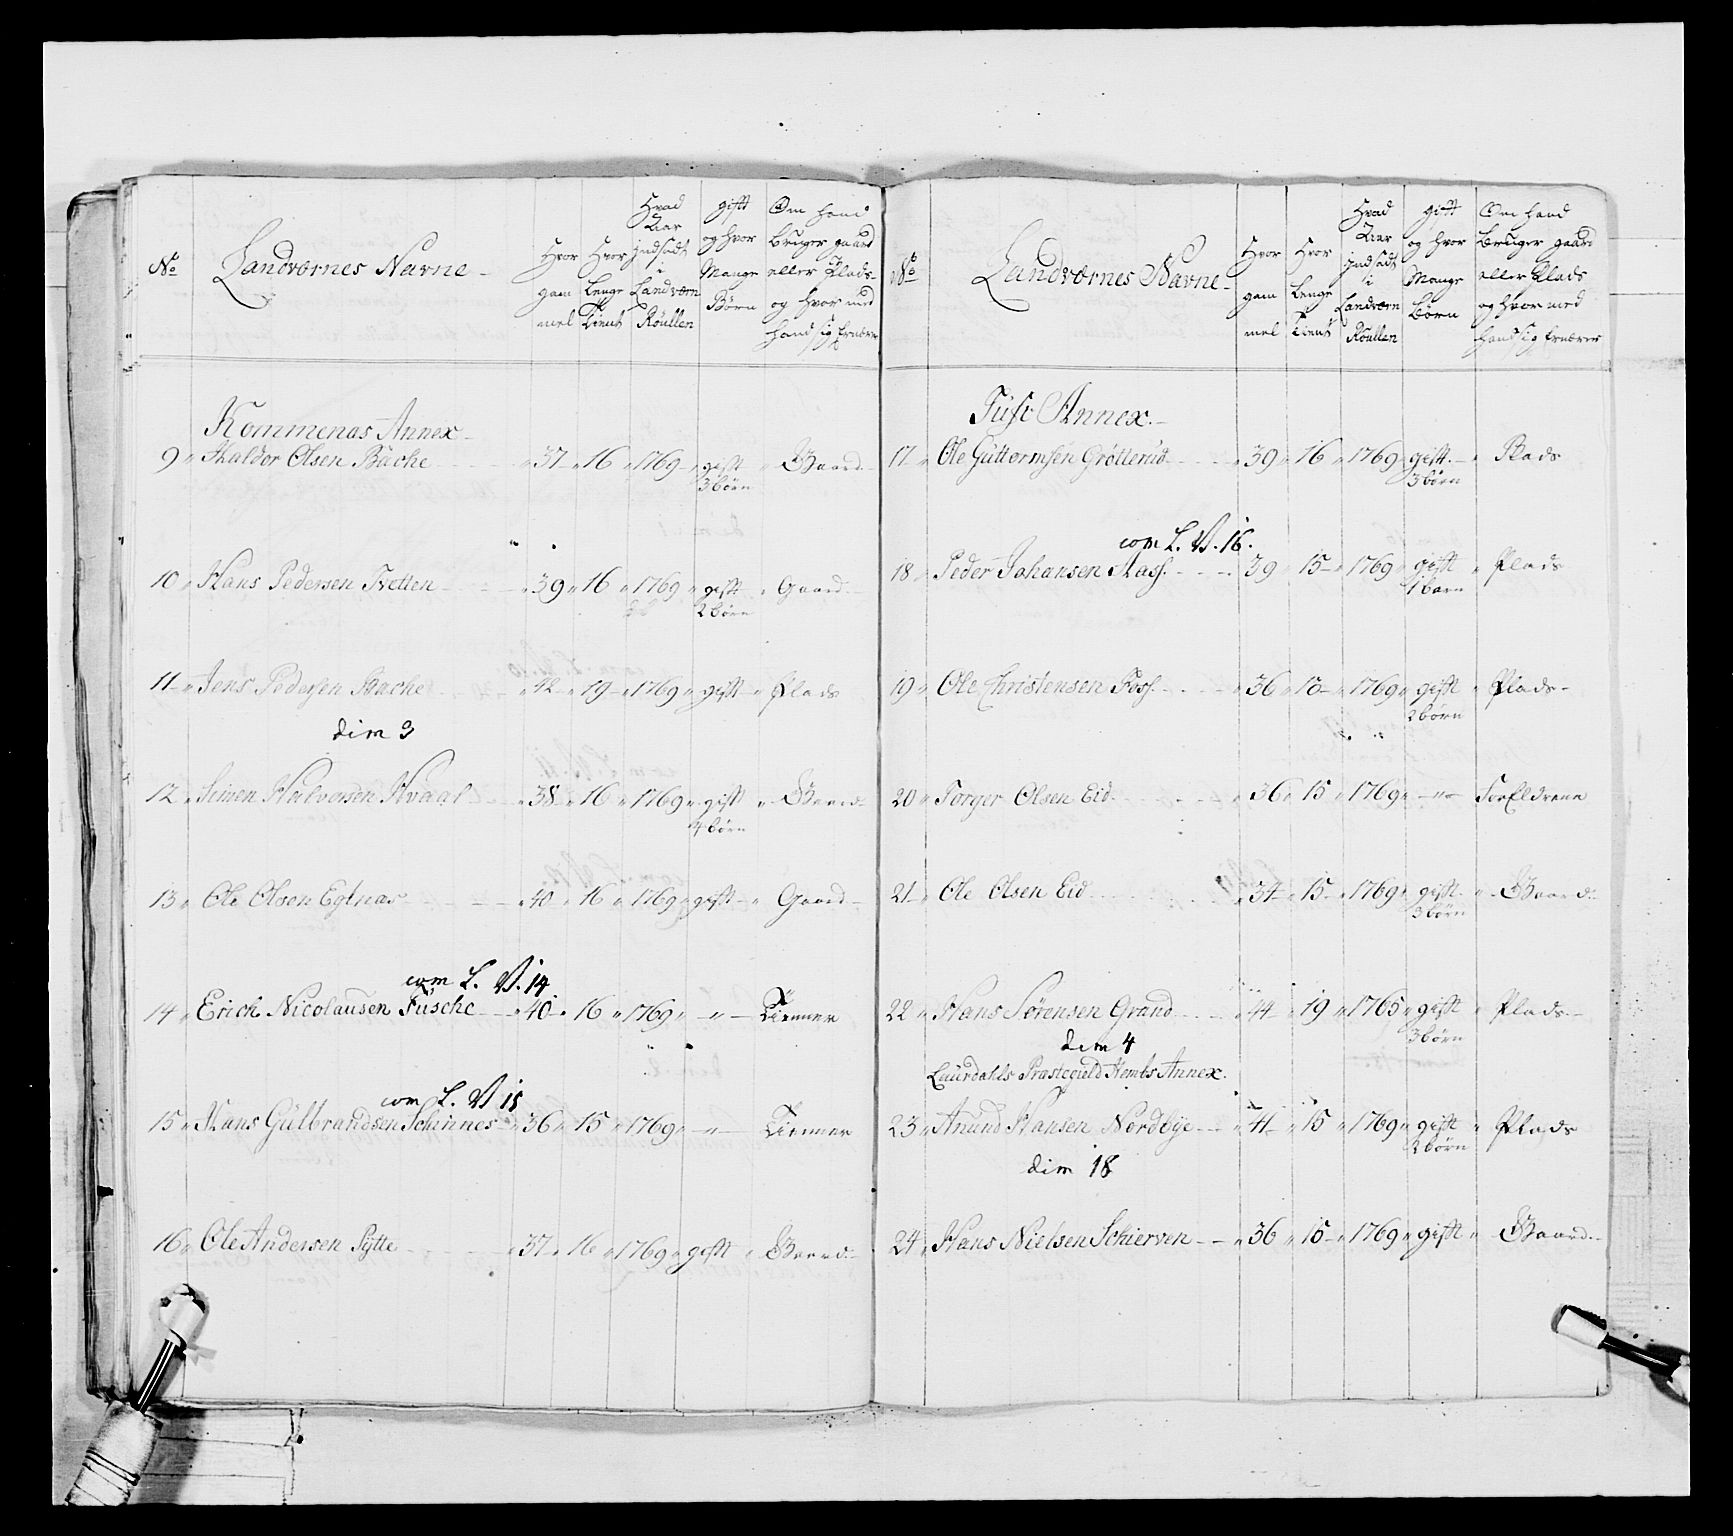 No
Landværnes Navne
Hvor gam mel
Hvor Lenge Tient
Hvad Aar Indsadt i Landværn Roullen
gift og hvor Mange Börn
Om hand bruger gaard eller Plads og hvor med hand sig Ernærer
Kommenas Annex
9 Haldor Olsen Bache 37 16 1769 gift Gaard
3 börn
10 Hans Pedersen Tvetten 39 16 1769 gift Gaard
2 börn
11 Jens Pedersen Bache 42 19 1769 gift Plads
dim 3
12 Simen Halvorsen Hvaal 38 16 1769 gift Gaard
4 börn
13 Ole Olsen Egtnas 40 16 1769 gift Gaard
com L. V. 14
14 Erich Nicolausen Fusche 40 16 1769 Tienner
com L. V 15
15 Hans Gulbrandsen Schinnes 36 15 1769 Tienner
16 Ole Andersen Pytte 37 16 1769 gift Gaard
No
Landværnes Navne
Hvor gam mel
Hvor Lenge Tient
Hvad Aar Indsadt i Landværn Roullen
gift og hvor Mange Börn
Om hand bruger gaard eller Plads og hvor med hand sig Ernærer
Tuft Annex
17 Ole Guttormsen Grötterud 39 16 1769 gift Plads
3 börn
com L. V. 16.
18 Peder Johansen Aass 39 15 1769 gift Plads
1 barn
19 Ole Christensen Foss 36 15 1769 gift Plads
2 börn
20 Torger Olsen Eid 36 15 1769 For Eldrene
21 Ole Olsen Eid 34 15 1769 gift Gaard
3 börn
22 Hans Sörensen Grand 44 19 1765 gift Plads
3 börn
dim 4
Laurdahls Præstegield Hembs Annex
23 Anund Hansen Nordbye 41 15 1769 gift Plads
2 börn
dim 18
24 Hans Nielsen Schierven 36 15 1769 gift Gaard